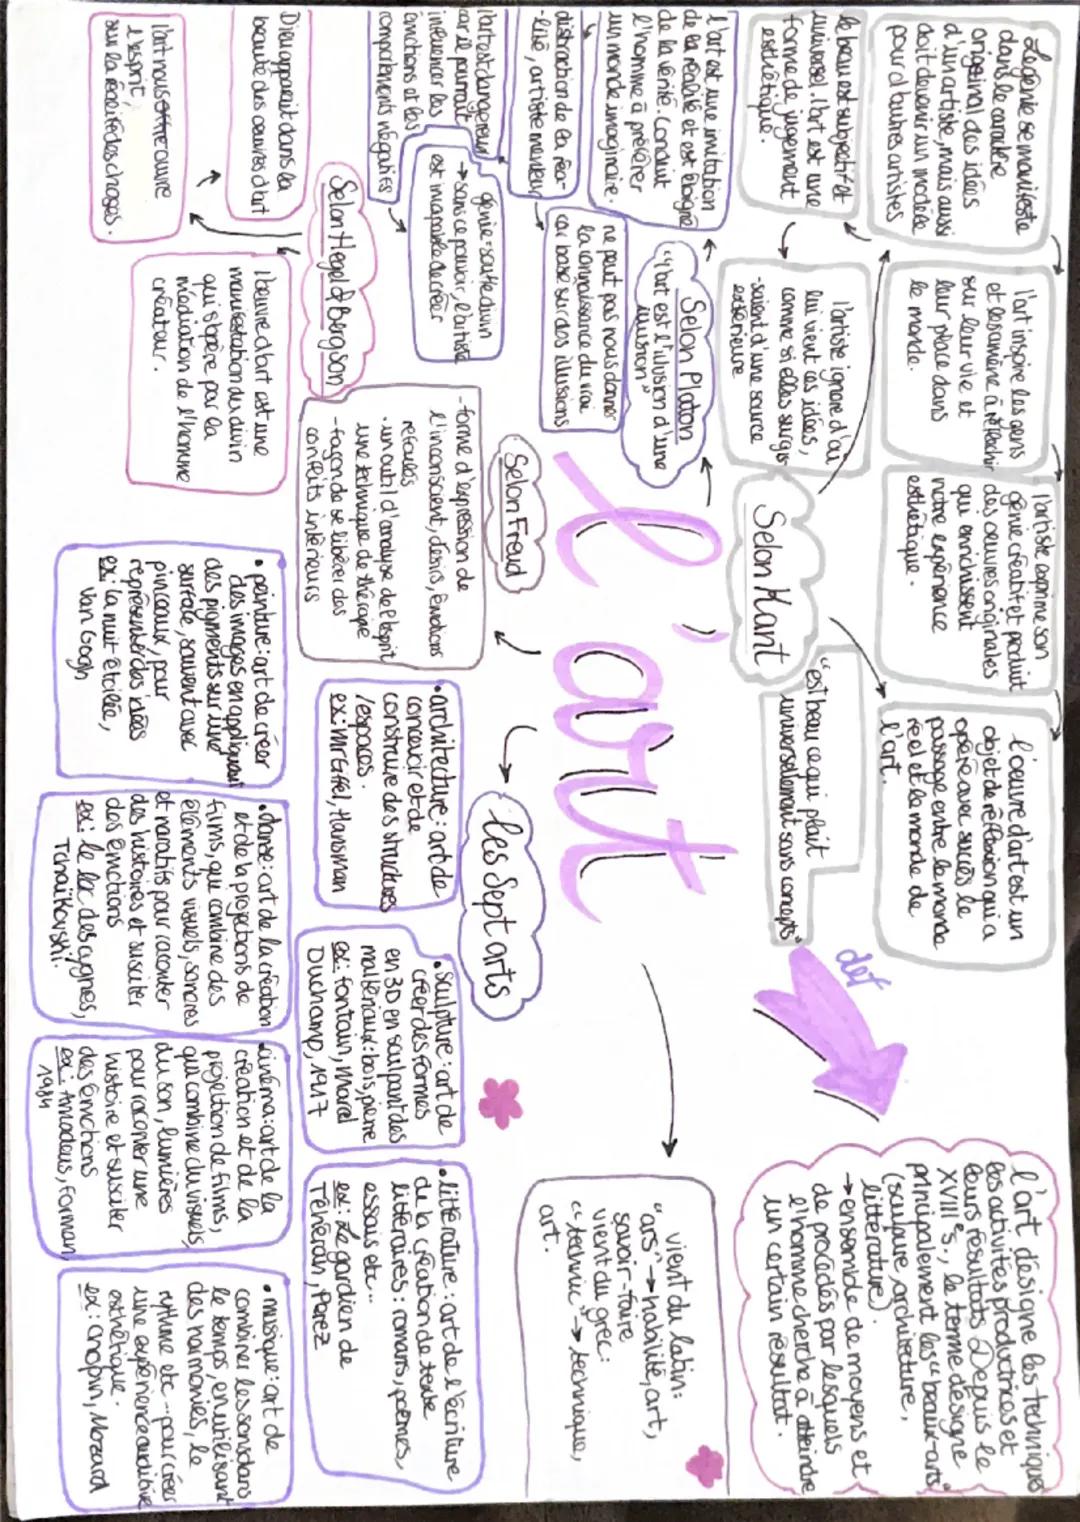 l'art
def
l'art désigne les techniques
les activités productrices et
leurs résultats. Depuis le
XVIIIe s., le terme désigne
principalement les "beaux-arts"
(sculpure, architecture,
littérature).
→ ensemble de moyens et
de procédés par lesquels
l'homme cherche à atteindre
un certain résultat.
vient du latin:
"ars" → habilité, art,
savoir-faire
vient du grec:
"technic" → technique,
art.
Selon Kant
"est beau ce qui plait
universellement sans concepts"
Le génie se manifeste
dans le caractère
original des idées
d'un artiste, mais aussi
doit devenir un modèle
pour d'autres artistes
l'art inspire les gens
et les amène à réflechir
sur leur vie et
leur place dans
le monde.
l'artiste exprime son
génie créatif et produit
des oeuvres originales
qui enrichissent
notre expérience
esthétique.
l'oeuvre d'art est un
objet de réflexion qui a
opéré avec succès le
passage entre le monde
réel et le monde de
l'art.
le beau est subjectif et
universel. l'art est une
forme de jugement
esthétique.
l'artiste ignore d'où
lui vient ces idées,
comme si elles surgis
-saient d'une source
extérieure
Selon Platon
"l'art est l'illusion d'une
illusion"
l'art est une imitation
de la réalité et est éloigné
de la vérité. Conduit
l'homme à préférer
un monde imaginaire.
ne peut pas nous donner
la connaissance du vrai
car basé sur des illusions
distraction de la réa-
-lité, artiste menteur
génie = souffle divin
→ sans ce pouvoir, l'artiste
est incapable de créer
l'art est dangereux
car il pourrait
influencer les
émotions et les
comportements négatifs
Selon Freud
-forme d'expression de
l'inconscient, désirs, émotions
refoulés
-un outil d'analyse de l'esprit
une technique de thérapie
-façon de se libérer des
conflits intérieurs
Selon Hegel & Bergson
Dieu apparait dans la
beauté des oeuvres d'art
l'oeuvre d'art est une
manifestation du divin
qui s'opère par la
médiation de l'homme
créateur.
l'art nous ouvre
l'esprit,
sur la réalité des choses.
les Sept arts
• architecture: art de
concevoir et de
construire des structures
/espaces.
ex: Mr Eiffel, Hansman
• Sculpture: art de
créer des formes
en 3D en sculpant des
matériaux: bois, pierre
ex: fontain, Marcel
Duchamp, 1917
• littérature: art de l'écriture
de la création de texte
littéraires: romans, poèmes,
essais etc...
ex: Le gardien de
Ténéran, Perez
• peinture: art de créer
des images en appliquant
des pigments sur une
surface, souvent avec
pinceaux, pour
représenter des idées
ex: la nuit étoilée,
Van Gogh
• danse: art de la création
et de la projections de
films, que combine des
éléments visuels, sonores
et narratifs pour raconter
des histoires et susciter
des émotions
ex: le lac des cygnes,
Tchaïkovski.
• cinéma: art de la
création et de la
projection de films,
qui combine du visuels,
du son, lumières
pour raconter une
histoire et susciter
des émotions
ex: Amadeus, Forman,
1984
• musique: art de
combiner les sons dans
le temps, en utilisant
des harmonies, le
rythme etc... pour créer
une expérience auditive
esthétique.
ex: chopin, Mozard